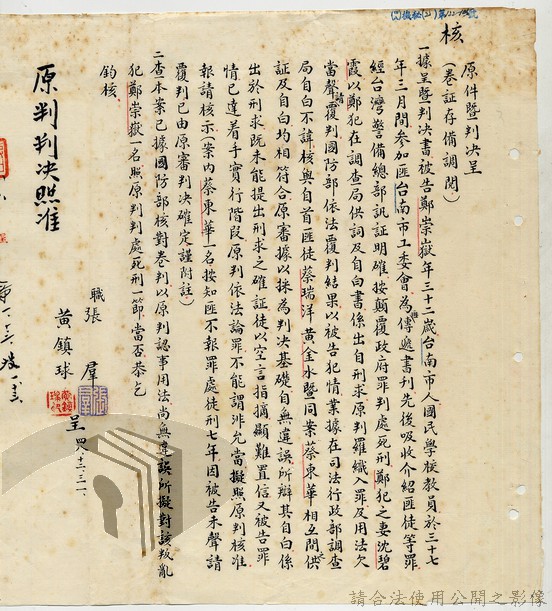 核
原件暨判決呈
(卷証存備調閱)
一據呈暨判決書被告鄭崇嶽年三十二歲台南市人國民學校教員於三十七
年三月間參加匪台南市工委會為匪傳遞書刊先後吸收介紹匪徒等罪
經台灣警備總部訊証明確按顛覆政府罪判處死刑鄭犯之妻沈碧
霞以鄭犯在調查局供詞及自白書係出自刑求原判羅織入罪及用法欠
當聲請覆判國防部依法覆判結果以被告犯情業據在司法行政部調查
局自白不諱核與自首匪徒蔡瑞洋黃金水暨同案蔡東華相互間供
証及自白均相符合原審據以採為判決基礎自無違誤所辯其自白係
出於刑求既未能提出刑求之確証徒以空言指摘顯難置信又被告罪
情已達着手實行階段原判依法論罪不能謂非允當擬照原判核准
報請核示(案內蔡東華一名按知匪不報罪處徒刑七年因被告未聲請
覆判已由原審判決確定謹附註)
二查本案已據國防部核對卷判以原判認事用法尚無違誤所擬對該叛亂
犯鄭崇嶽一名照原判判處死刑一節當否恭乞
鈞核
職張 羣
黃鎮球 呈
四八、三、三一、
原判判決照准
請合法使用公開之影像